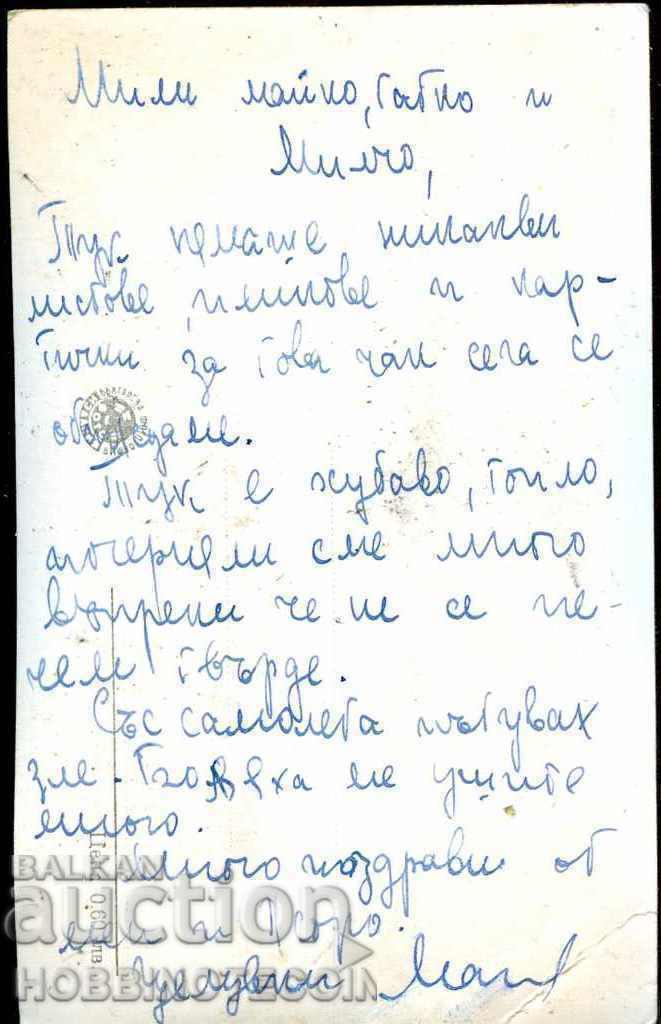 Мили майко, татко и
Милчо,
Тук немаше никакви
листове, пликове и кар-
тички за това чак сега се
обаждаме.
Тук е хубаво, топло,
почернели сме много
въпреки че не се пе-
чем твърде.
Със самолета пътувах
зле. Боляха ме ушите
много.
Много поздрави от
мен и
Целувки
Цена 0.60 лв.
BALKAN
auction
HOBBINOTECOIN